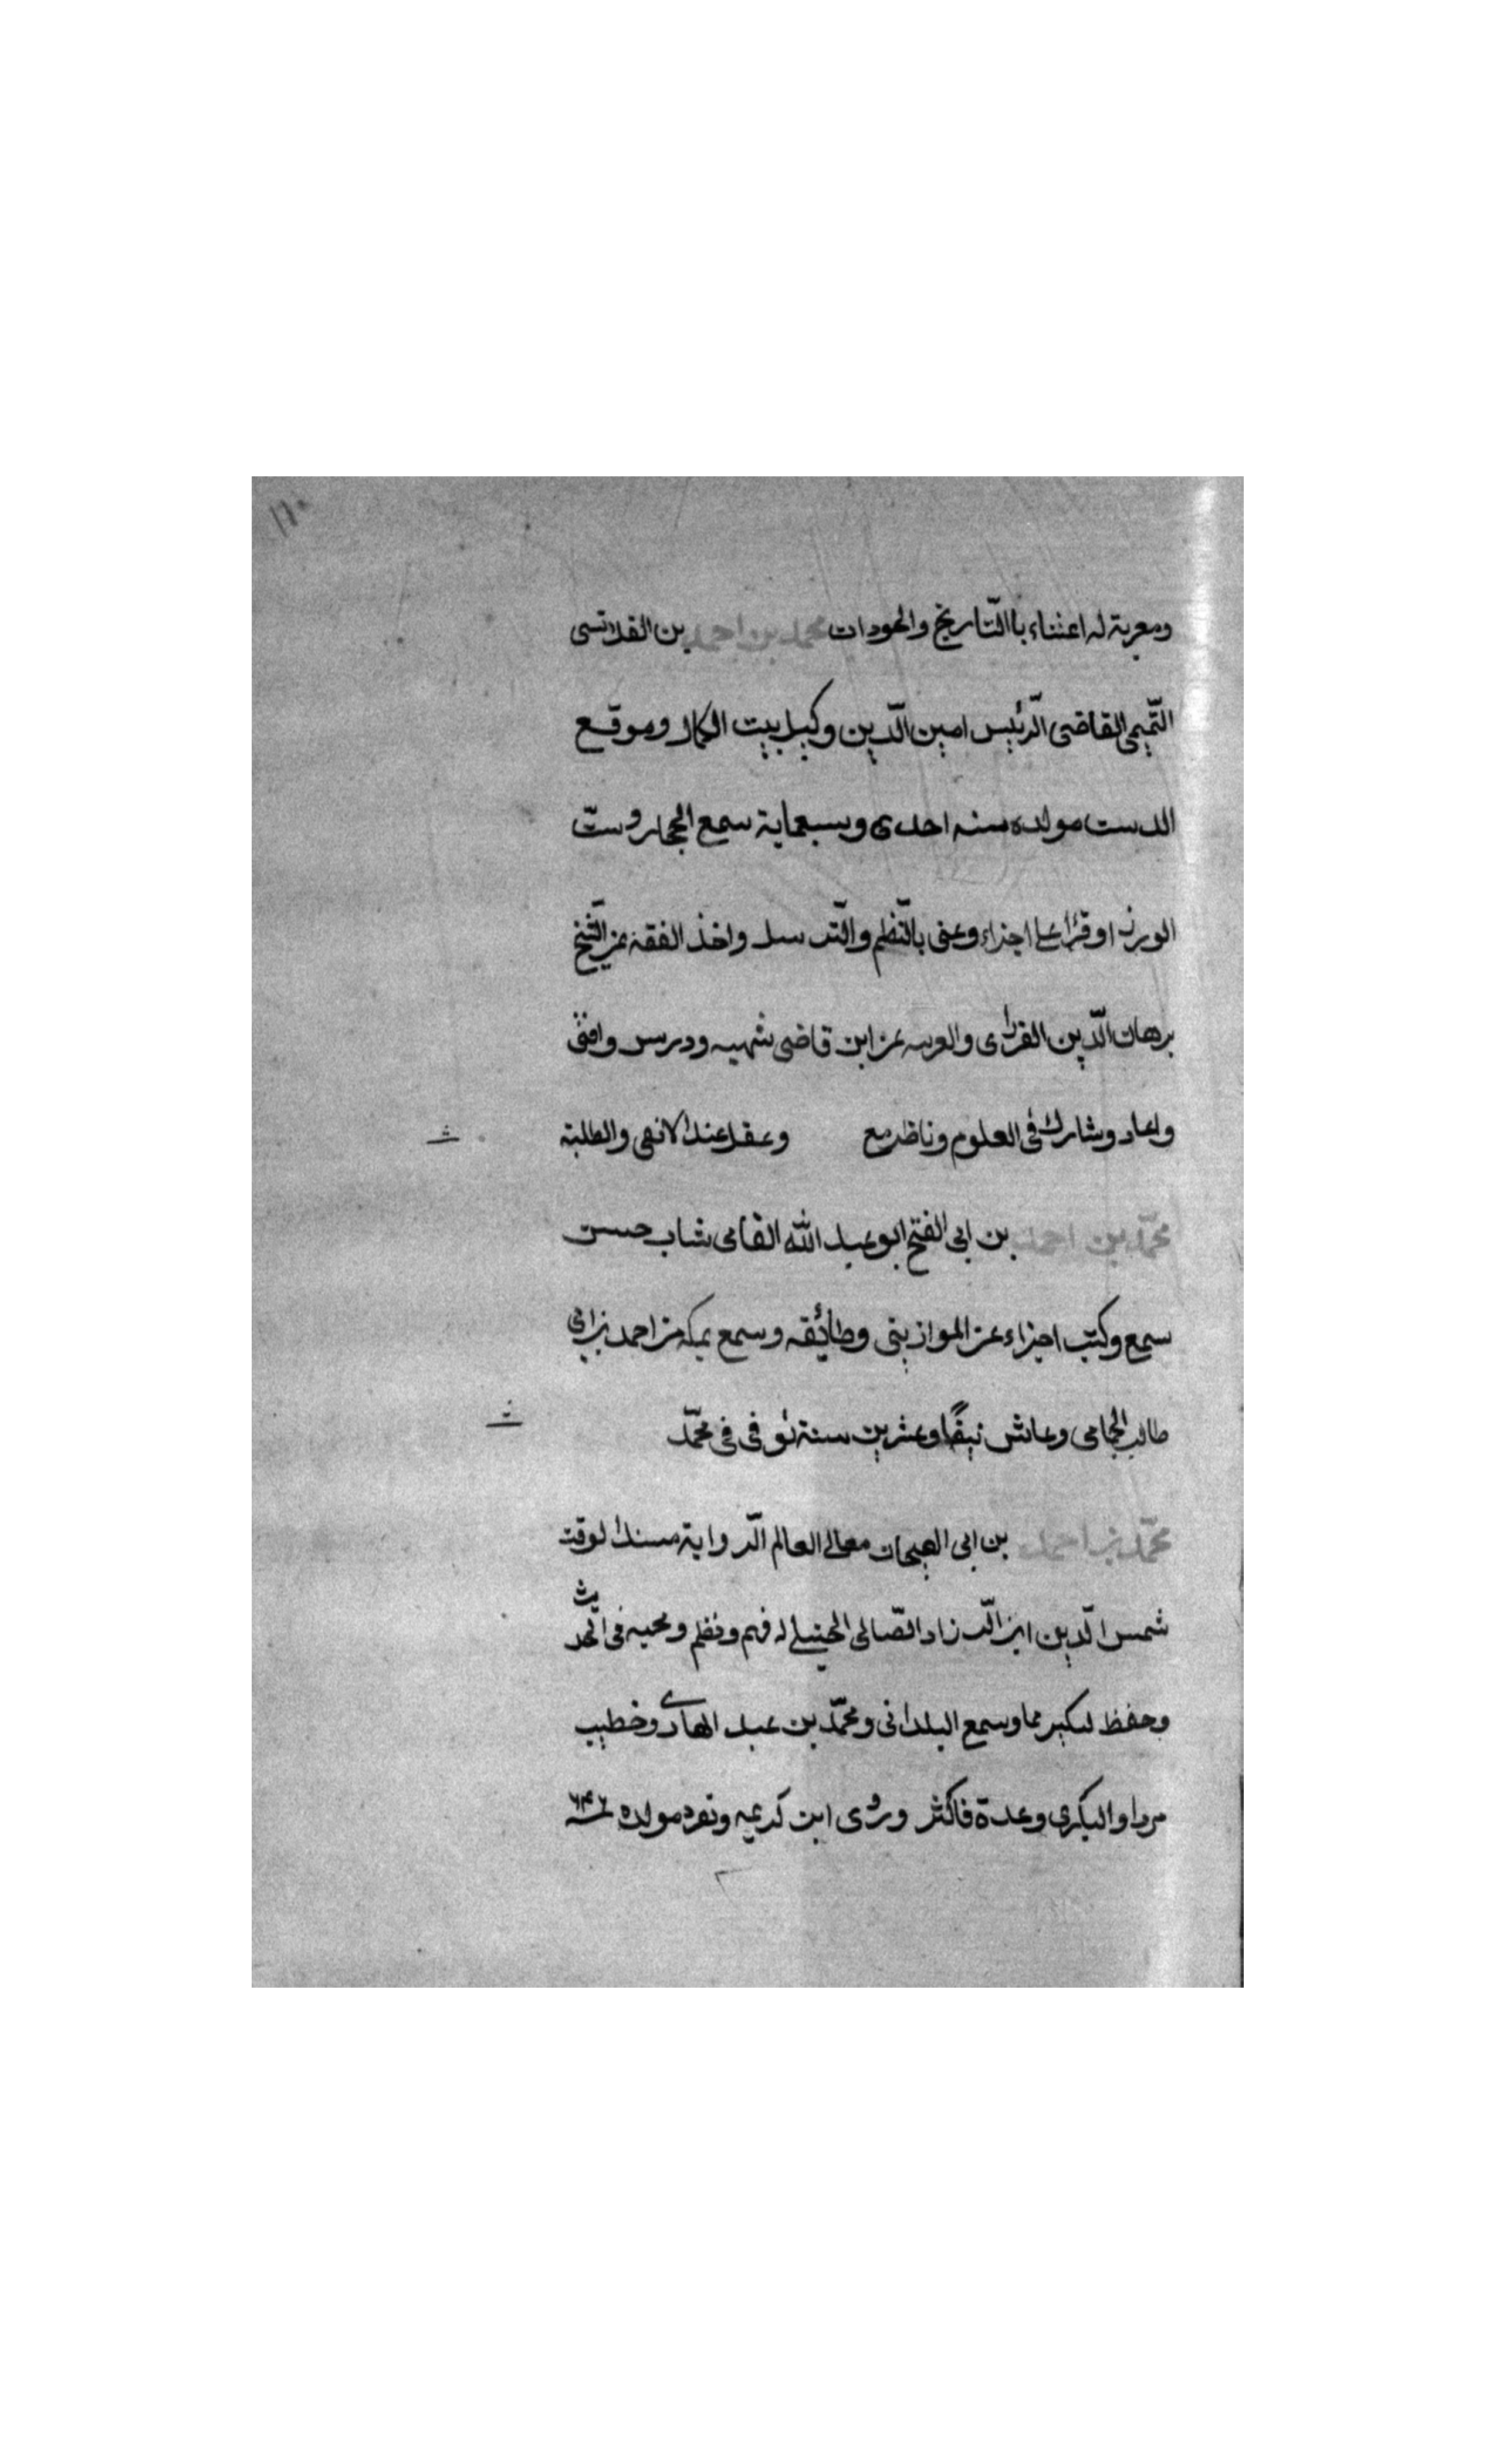 ١٦٠
ومعربة له اعتناء باالتّاريخ والحودات محمد بن احمد بن القلانسى
التّميمى القاضى الرّئيس امين الدّين وكيل بيت المال وموقع
الدست مولده سنه احدى وسبعماية سمع الحجار وست
الوزرا وقرأ على اجزاء وعنى بالنّظم والتّرسل واخذ الفقه عن الشّيخ
برهان الدّين الفزارى والعربيه عن ابن قاضى شهبه ودرس وافتى
واعاد وشارك فى العلوم وناظر مع وعقل عند الانهى والطلبة
محمّد بن احمد بن ابى الفتح ابو عبد الله القامى شاب حسن
سمع وكتب اجزاء عن الموازينى وطائفه وسمع بمكه من احمد بن ابى
طالب الحمامى وعاش نيفًا وعشرين سنة توفى فى محمّد
محمّد بن احمد بن ابى الهيجان معالى العالم الرّواية مسند الوقت
شمس الدّين ابن الزّراد الصّالحى الحنبلى له فهم ونظم ومحبه فى الحديث
وحفظ لكثير مما وسمع البلدانى ومحمّد بن عبد الهادى وخطيب
مردا والبكرى وعدة فاكثر وروى ابن كريمه وتفرد مولده ٦٤٦